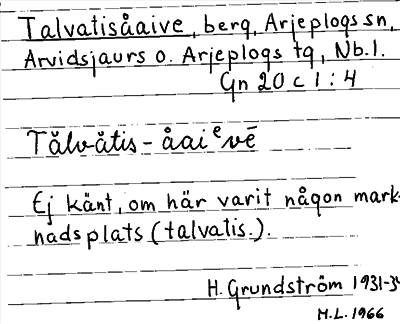 Talvatisåaive, berg, Arjeplogs sn,
Arvidsjaurs o. Arjeplogs tg, Nb.l.
Gn 20 c 1 : 4
Tălvătis - åaiᵉvē
Ej känt, om här varit någon mark-
nadsplats (talvatis.).
H. Grundström 1931-34
M.L. 1966